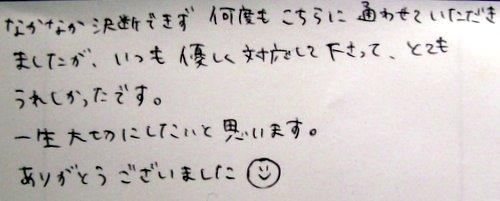 なかなか決断できず 何度も こちらに 通わせていただき
ましたが、いつも 優しく 対応して下さって、とても
うれしかったです。
一生大切にしたいと思います。
ありがとうございました